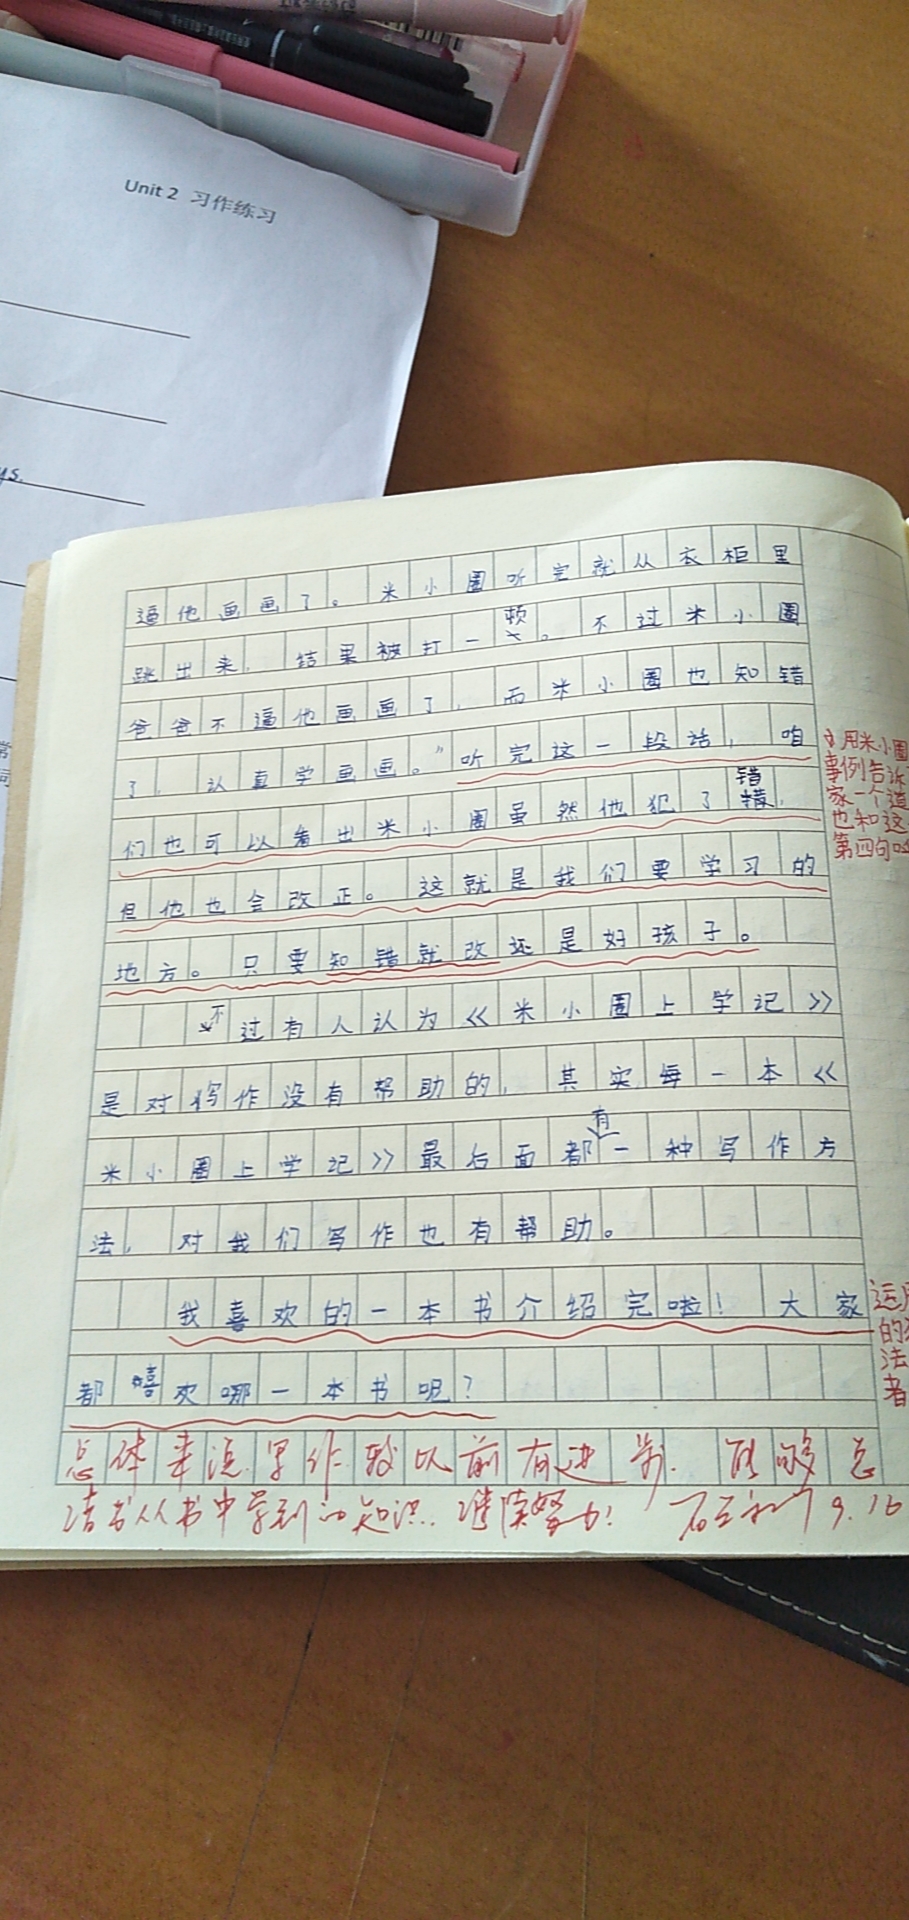 Unit 2 习作练习
ys.
逼他画画了。米小圈听完就从衣柜里
跳出来，结果被打一顿。不过米小圈
爸爸不逼他画画了，而米小圈也知错
了，认真学画画。”听完这一段话，咱
们也可以看出米小圈虽然他犯了错，
但他也会改正。这就是我们要学习的
地方。只要知错就改还是好孩子。
不过有人认为《米小圈上学记》
是对写作没有帮助的，其实每一本《
米小圈上学记》最后面都有一种写作方
法，对我们写作也有帮助。
我喜欢的一本书介绍完啦！大家
都嘻欢哪一本书呢？
用米小圈
事例告诉
家一个道
也和这
第四句
运用
的
法
者
总体来说，写作较以前有进步，能够总
结出从书中学到的知识，继续努力！
9.16